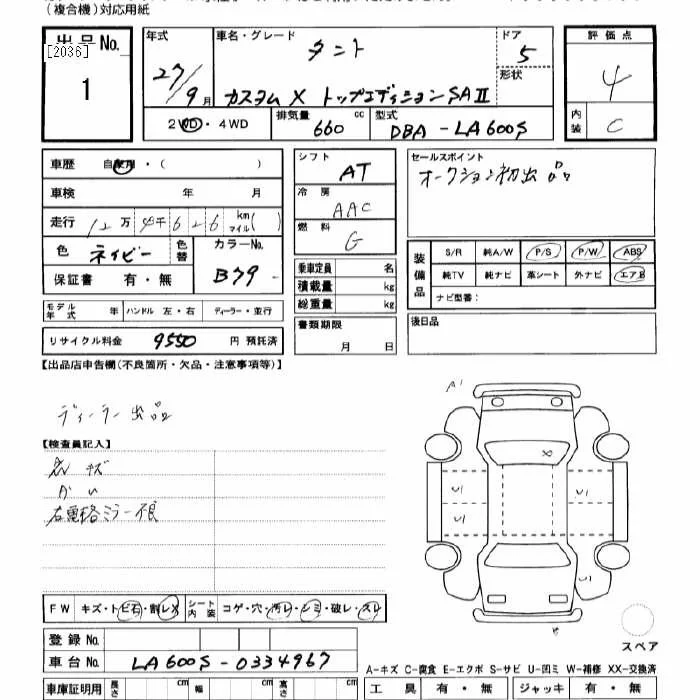 (複合機)対応用紙
出品No. 年式 車名・グレード ドア 評価点
[2036] タント 5
1 27/9月 カスタムX トップエディションSAⅡ 形状 4
2WD・4WD 排気量 660 cc 型式 DBA-LA600S 内装 C
車歴 自家用・( )
車検 年 月
走行 12万4千626 km マイル( )
色 ネイビー 色替 カラーNo. B79-
保証書 有・無
モデル年式 年 ハンドル 左・右 ディーラー・並行
リサイクル料金 9550 円 預託済
シフト AT
冷房 AAC
燃料 G
乗車定員 名
積載量 kg
総重量 kg
書類期限
月 日
セールスポイント
オークション初出品
装備品 S/R 純A/W P/S P/W ABS
純TV 純ナビ 革シート 外ナビ エアB
ナビ型番:
後日品
【出品店申告欄(不良箇所・欠品・注意事項等)】
ディーラー出品
【検査員記入】
右電格ミラー不良
A1
X
U1 U1
U1
U1
FW キズ・トビ石・割レX シート内装 コゲ・穴・汚レ・シミ・破レ・スレ
登録No.
車台No. LA600S-0334967
車庫証明用 長さ cm 幅 cm 高さ cm
スペア
A-キズ C-腐食 E-エクボ S-サビ U-凹ミ W-補修 XX-交換済
工具 有・無 ジャッキ 有・無